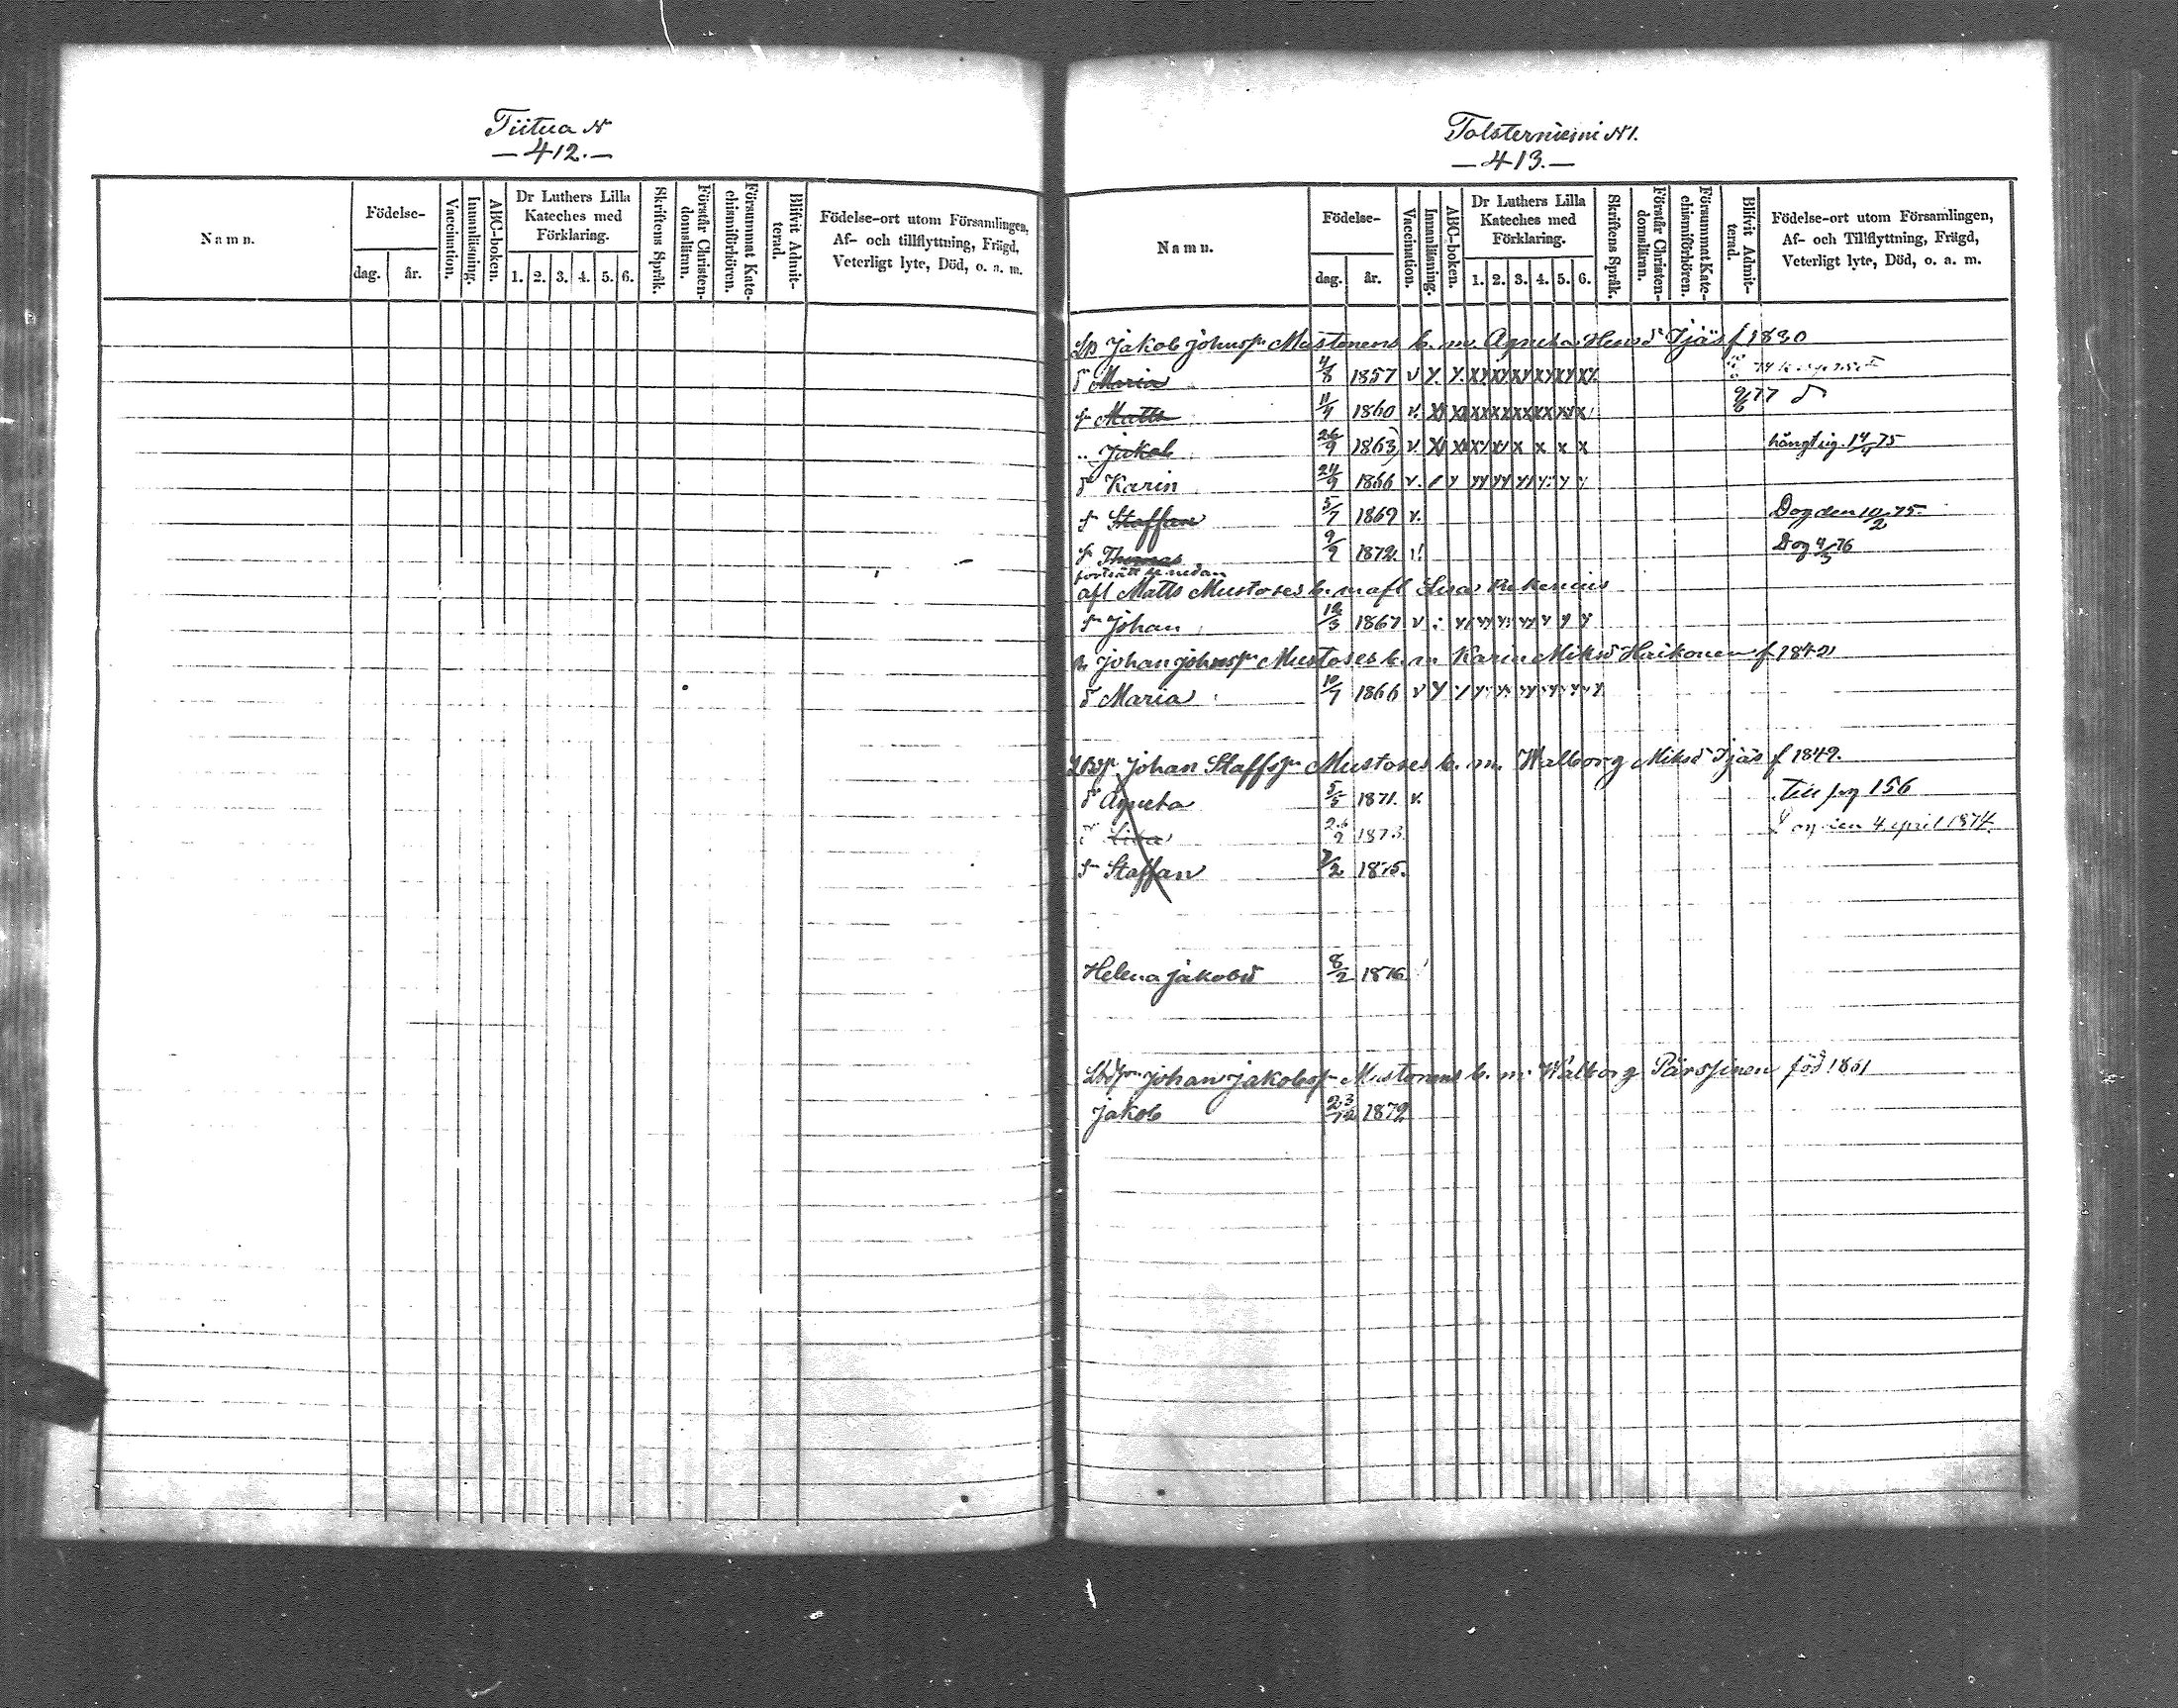 Tiitua N
— 412. —
Namn.
Födelse-
dag.
år.
Vaccination.
Innanläsning.
ABC-boken.
Dr Luthers Lilla
Kateches med
Förklaring.
1. 2. 3. 4. 5. 6.
Skriftens Språk.
Förstår Christen-
domsläran.
Försummat Kate-
chismiförhören.
Blifvit Admit-
terad.
Födelse-ort utom Församlingen,
Af- och tillflyttning, Frägd,
Veterligt lyte, Död, o. a. m.
Tolsterniemi N1.
— 413. —
Namn.
Födelse-
dag.
år.
Vaccination.
Innanläsning.
ABC-boken.
Dr Luthers Lilla
Kateches med
Förklaring.
1. 2. 3. 4. 5. 6.
Skriftens Språk.
Förstår Christen-
domsläran.
Försummat Kate-
chismiförhören.
Blifvit Admit-
terad.
Födelse-ort utom Församlingen,
Af- och Tillflyttning, Frägd,
Veterligt lyte, Död, o. a. m.
Jakob Johnsn Mustonens b. m. Agneta Hensd Tjäs f 1830
d Maria 4/8 1857 v
sn Matts 11/4 1860 v. 9/6 77
" Jakob 26/9 1863 v. hängt sig. 14/4 75
d Karin 24/9 1866 v.
sn Staffan 5/7 1869 v. Dog den 10/2 75.
sn Thomas 9/9 1872. Dog 4/3 76
fortsätt se nedan
afl Matts Mustoses b. m afl Lisa
sn Johan 12/3 1867 v
Johan Johnsn Mustoses b. m Karin Miksd Haikonen f 1842
d Maria 10/7 1866 v
Johan Staffsn Mustoses b. m. Walborg Miksd Tjäs f 1849.
d Agneta 5/5 1871. v. till pg 156
d Lisa 26/9 1873. Dog den 4 april 1874.
sn Staffan 7/2 1875.
Helena Jakobsd 8/2 1876
Johan Jakobsn Mustonens b. m. Walborg Pärssinen född 1851
Jakob 23/12 1879